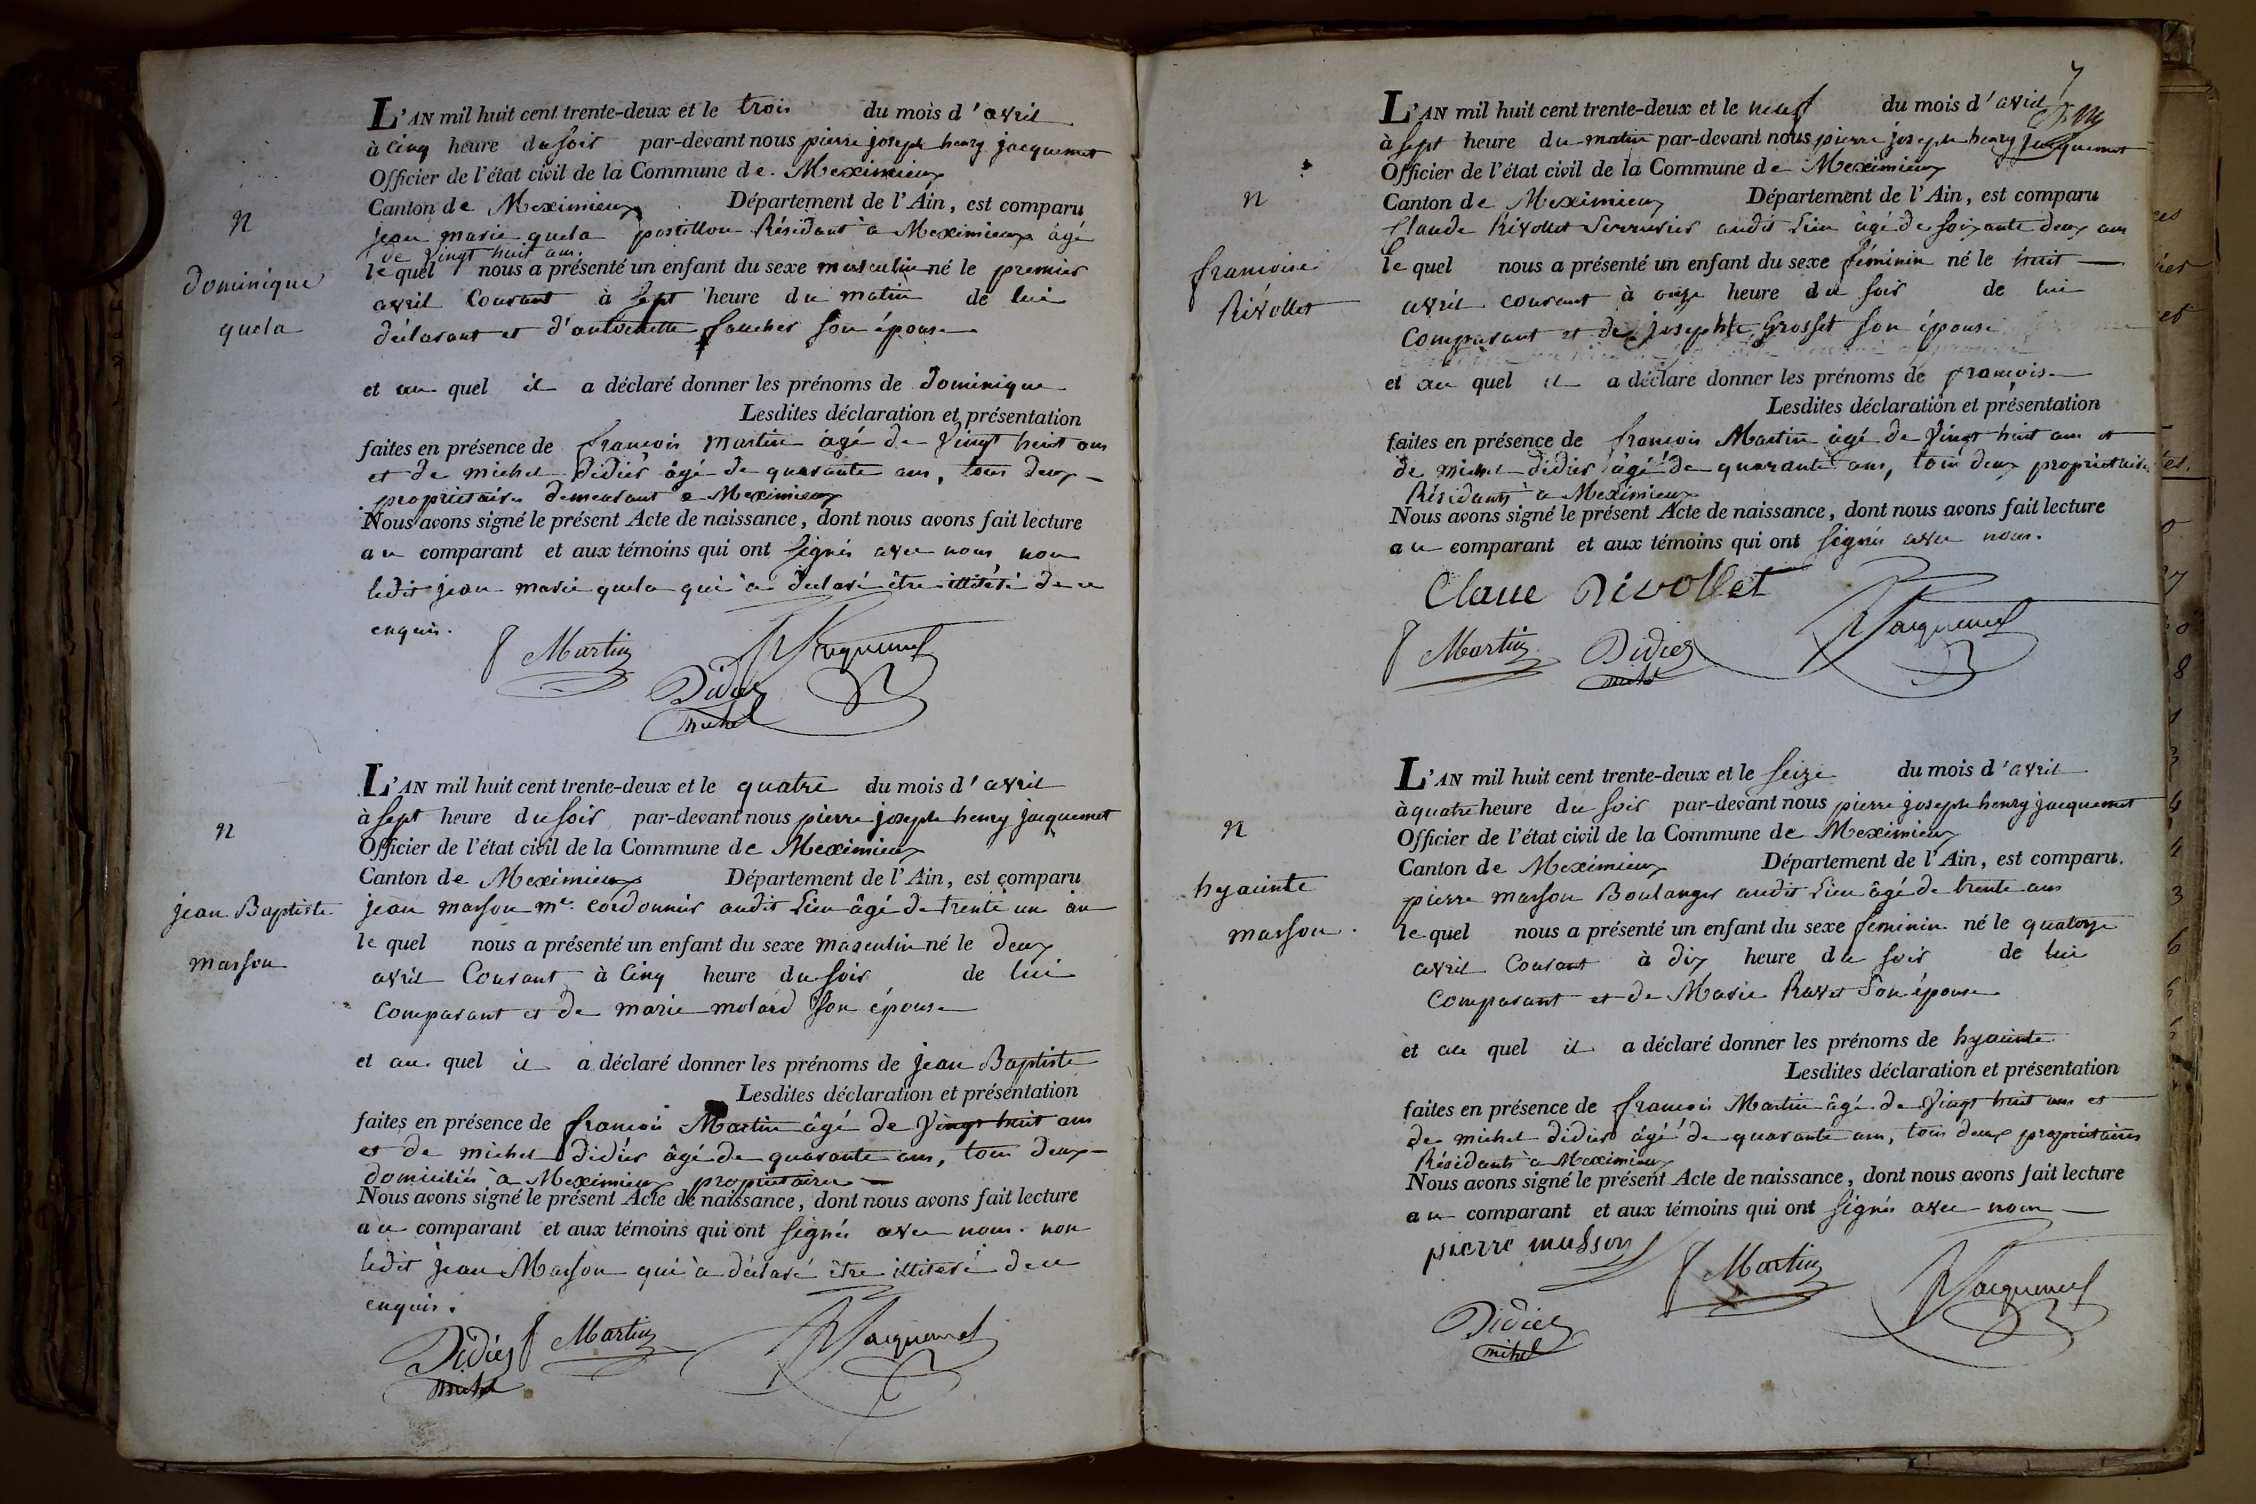 n
dominique
quela
L'AN mil huit cent trente-deux et le trois du mois d'avril
à cinq heure du soir par-devant nous pierre joseph henry jacquemet
Officier de l'état civil de la Commune de Meximieux
Canton de Meximieux Département de l'Ain, est comparu
jean marie quela postillon Résidant à Meximieux âgé
de vingt huit ans.
le quel nous a présenté un enfant du sexe masculin né le premier
avril Courant à sept heure du matin de lui
déclarant et d'antoinette faucher son épouse
et au quel il a déclaré donner les prénoms de dominique
Lesdites déclaration et présentation
faites en présence de françois martin âgé de vingt huit ans
et de michel didier âgé de quarante ans, tous deux
propriétaires demeurant a Meximieux
Nous avons signé le présent Acte de naissance, dont nous avons fait lecture
au comparant et aux témoins qui ont signés avec nous non
ledit jean marie quela qui a déclaré être illitéré de ce
enquis.
f Martin
Jacquemet
Didier
michel
n
jean Baptiste
masson
L'AN mil huit cent trente-deux et le quatre du mois d'avril
à sept heure du soir par-devant nous pierre joseph henry jacquemet
Officier de l'état civil de la Commune de Meximieux
Canton de Meximieux Département de l'Ain, est comparu
jean masson me. cordonnier audit lieu âgé de trente un an
le quel nous a présenté un enfant du sexe masculin né le deux
avril Courant à cinq heure du soir de lui
comparant et de marie molard son épouse
et au quel il a déclaré donner les prénoms de jean Baptiste
Lesdites déclaration et présentation
faites en présence de françois Martin âgé de vingt huit ans
et de michel didier âgé de quarante ans, tous deux
domiciliés à Meximieux propriétaires
Nous avons signé le présent Acte de naissance, dont nous avons fait lecture
au comparant et aux témoins qui ont signés avec nous. non
ledit jean Masson qui a déclaré être illiteré de ce
enquis.
Didier f Martin Jacquemet
michel
7
n
françoise
Rivollet
L'AN mil huit cent trente-deux et le neuf du mois d'avril
à sept heure du matin par-devant nous pierre joseph henry jacquemet
Officier de l'état civil de la Commune de Meximieux
Canton de Meximieux Département de l'Ain, est comparu
Claude Rivollet Serrurier audit lieu âgé de soixante deux ans
le quel nous a présenté un enfant du sexe féminin né le huit
avril courant à onze heure du soir de lui
comparant et de josephte Grosset son épouse
et au quel il a déclaré donner les prénoms de françoise
Lesdites déclaration et présentation
faites en présence de françois Martin âgé de vingt huit ans et
de michel didier âgé de quarante ans, tous deux propriétaires
Résidants à Meximieux
Nous avons signé le présent Acte de naissance, dont nous avons fait lecture
au comparant et aux témoins qui ont signés avec nous.
Claue Rivollet
f Martin Didier Jacquemet
michel
n
hyacinte
masson.
L'AN mil huit cent trente-deux et le seize du mois d'avril
à quatre heure du soir par-devant nous pierre joseph henry jacquemet
Officier de l'état civil de la Commune de Meximieux
Canton de Meximieux Département de l'Ain, est comparu.
pierre masson Boulanger audit lieu âgé de trente ans
le quel nous a présenté un enfant du sexe féminin né le quatorze
avril Courant à dix heure du soir de lui
comparant et de Marie Ravet Son épouse
et au quel il a déclaré donner les prénoms de hyacinte
Lesdites déclaration et présentation
faites en présence de françois Martin âgé de vingt huit ans et
de michel didier âgé de quarante ans, tous deux propriétaires
Résidants à Meximieux
Nous avons signé le présent Acte de naissance, dont nous avons fait lecture
au comparant et aux témoins qui ont signés avec nous
pierre masson f Martin Jacquemet
Didier
michel